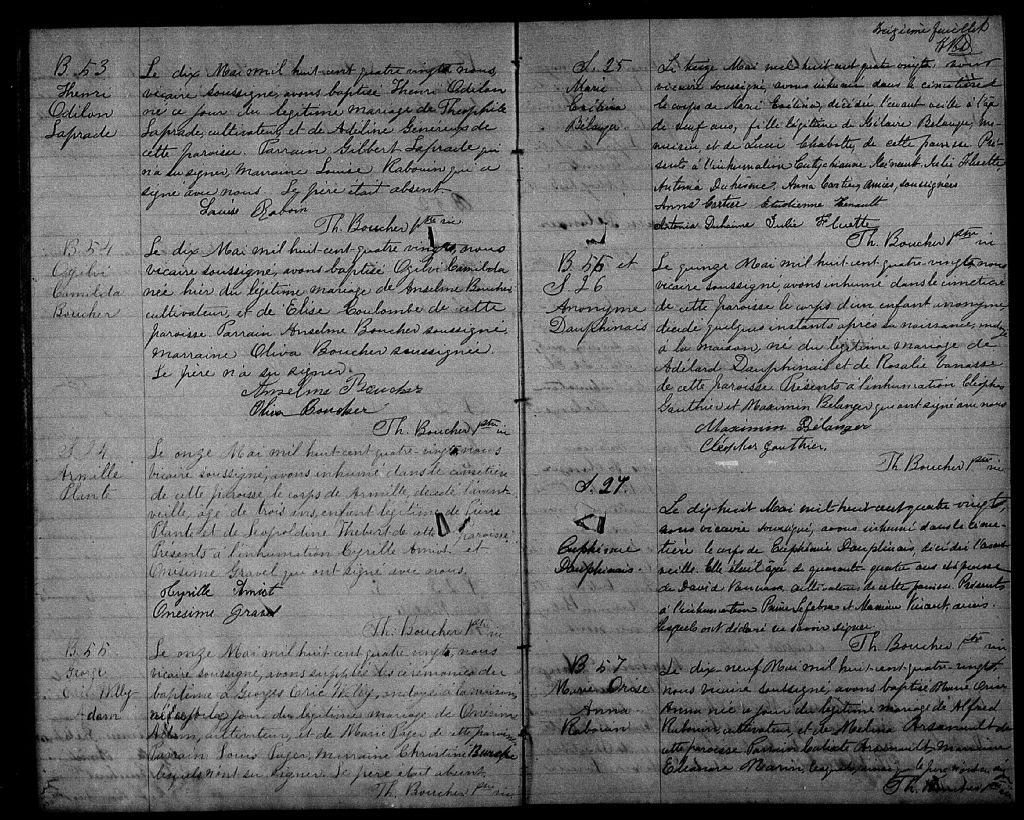 B. 53
Henri
Odilon
Laprade
Le dix Mai mil huit-cent quatre vingts, nous,
vicaire soussigné, avons baptisé Henri Odilon
né ce jour du légitime mariage de Théophile
Laprade, cultivateur, et de Adéline Généreux de
cette paroisse. Parrain Gilbert Laprade qui
n'a su signer, marraine Louise Rabouin qui a
signé avec nous. Le père était absent.
Louise Raboin
Th. Boucher Ptre vic
B. 54
Ogilvi
Camilda
Boucher
Le dix Mai mil huit-cent-quatre vingts, nous
vicaire soussigné, avons baptisé Ogilvi Camilda
née hier du légitime mariage de Anselme Boucher
cultivateur, et de Elise Coulombe de cette
paroisse. Parrain Anselme Boucher soussigné,
marraine Oliva Boucher soussignée.
Le père n'a su signer.
Anselme Boucher
Oliva Boucher
Th. Boucher Ptre vic
S. 24
Armille
Plante
Le onze Mai mil huit-cent-quatre-vingts, nous
vicaire soussigné, avons inhumé dans le cimetière
de cette paroisse le corps de Armille, décédé l'avant-
veille, âgé de trois ans, enfant légitime de Pierre
Plante et de Léopoldine Thebert de cette paroisse.
Présents à l'inhumation Cyrille Amiot et
Onesime Gravel qui ont signé avec nous.
Cyrille Amiot
Onesime Gravel
Th. Boucher Ptre vic
B. 55.
George
Willy
Adam
Le onze Mai mil huit-cent quatre vingts, nous
vicaire soussigné, avons suppléé les cérémonies du
baptême à Georges Willy, ondoyé à la maison,
né ce jour du légitime mariage de Onesime
Adam, cultivateur, et de Marie Pager de cette paroisse
Parrain Louis Pager, marraine Christine
lesquels n'ont su signer. Le père était absent.
Th. Boucher Ptre vic
feuillet
S. 25
Marie
Exilina
Bélanger
Le treize Mai mil huit-cent quatre vingts nous
vicaire soussigné, avons inhumé dans le cimetière
le corps de Marie Exilina, décédée l'avant veille à l'âge
de neuf ans, fille légitime de Hilaire Bélanger, me-
nuisier et de Lucie Chabotte, de cette paroisse. Pré-
sents à l'inhumation Henault, Julie Fluette,
Antonia Duhaime, Anna Cartier, amies, soussignées
Anna Cartier Henault
Antonia Duhaime Julie Fluette
Th. Boucher Ptre vic
B. 56 et
S. 26
Anonyme
Dauphinais
Le quinze Mai mil huit-cent-quatre-vingts, nous
vicaire soussigné, avons inhumé dans le cimetière
de cette paroisse le corps d'un enfant anonyme,
décédé quelques instants après sa naissance, ondoyé
à la maison, né du légitime mariage de
Adélard Dauphinais et de Rosalie Vanasse
de cette paroisse. Présents à l'inhumation Cléophas
Gauthier et Maximin Bélanger qui ont signé avec nous
Maximin Bélanger
Cléophas Gauthier.
Th. Boucher Ptre vic
S. 27.
Euphémie
Dauphinais
Le dix-huit Mai mil huit-cent quatre vingts,
nous vicaire soussigné, avons inhumé dans le cime-
tière le corps de Euphémie Dauphinais, décédée l'avant
veille. Elle était âgée de quarante quatre ans et épouse
de David Vanasse, cultivateur, de cette paroisse. Présents
à l'inhumation Pierre Lefebvre et Maxime amis.
lesquels ont déclaré ne savoir signer.
Th. Boucher Ptre vic
B. 57
Marie Orise
Anna
Raboin
Le dix-neuf Mai mil huit-cent-quatre-vingts
nous vicaire soussigné, avons baptisé Marie Orise
Anna née ce jour du légitime mariage de Alfred
Rabouin, cultivateur, et de Melina Arsenault de
cette paroisse. Parrain Calixte Arsenault, marraine
Eléonore Marin, lesquels le père n'ont su signer
Th. Boucher Ptre vic